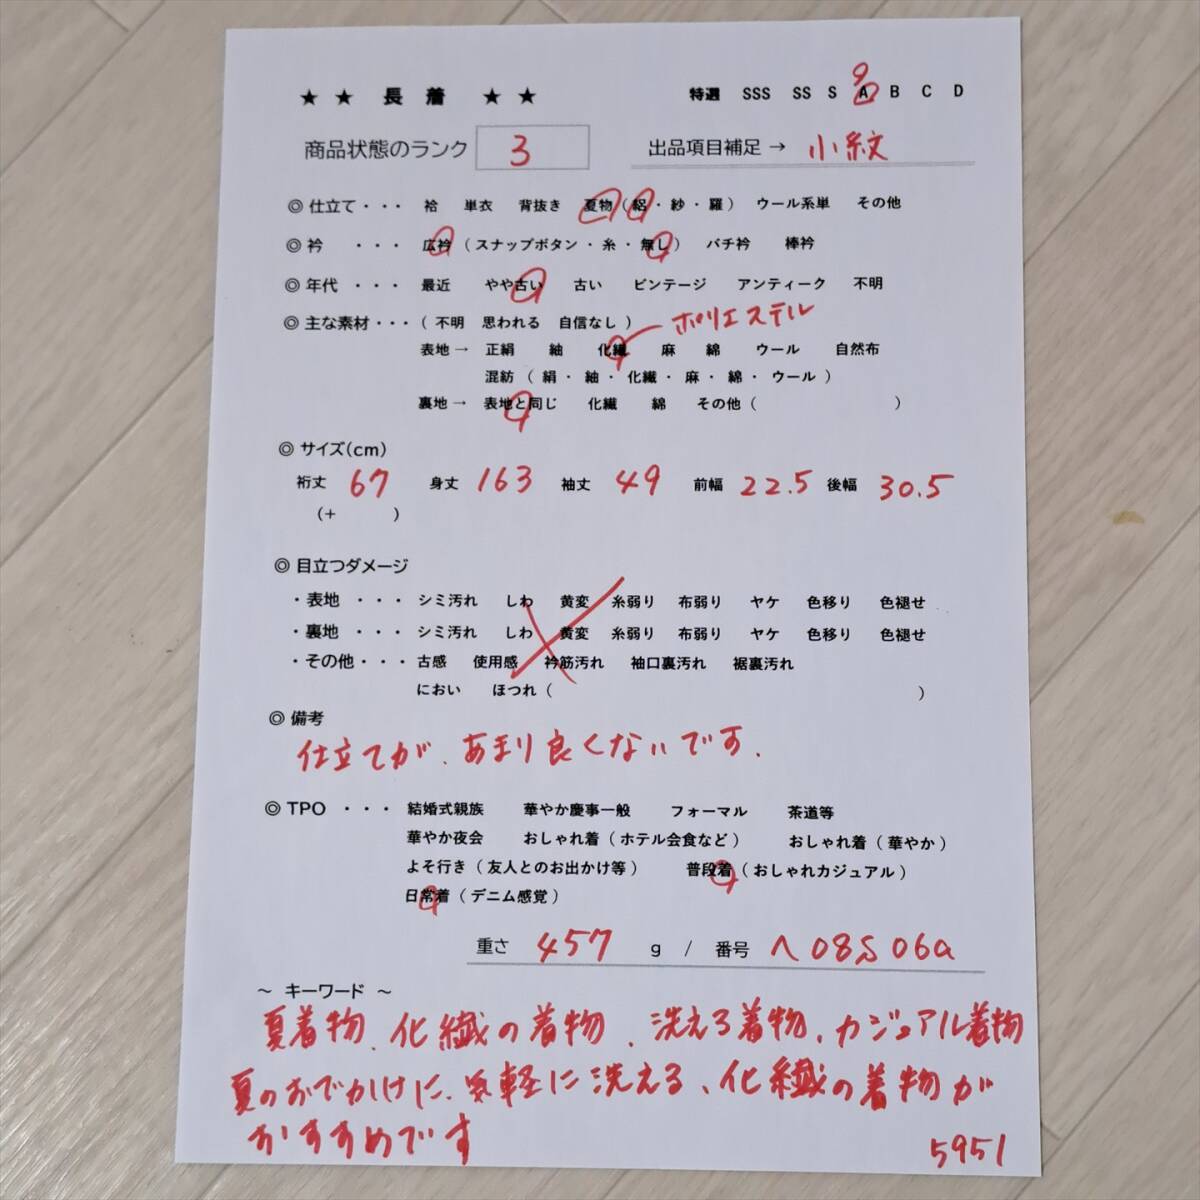 ★ ★ 長 着 ★ ★ 特選 SSS SS S A B C D
商品状態のランク 3 出品項目補足 → 小紋
◎ 仕立て・・・ 袷 単衣 背抜き 夏物（絽・紗・羅） ウール系単 その他
◎ 衿 ・・・ 広衿（スナップボタン・糸・無し） バチ衿 棒衿
◎ 年代 ・・・ 最近 やや古い 古い ビンテージ アンティーク 不明
◎ 主な素材・・・（ 不明 思われる 自信なし ） ポリエステル
表地 → 正絹 紬 化繊 麻 綿 ウール 自然布
混紡（ 絹・紬・化繊・麻・綿・ウール ）
裏地 → 表地と同じ 化繊 綿 その他（ ）
◎ サイズ(cm)
裄丈 67 身丈 163 袖丈 49 前幅 22.5 後幅 30.5
(+ )
◎ 目立つダメージ
・表地 ・・・ シミ汚れ しわ 黄変 糸弱り 布弱り ヤケ 色移り 色褪せ
・裏地 ・・・ シミ汚れ しわ 黄変 糸弱り 布弱り ヤケ 色移り 色褪せ
・その他・・・ 古感 使用感 衿筋汚れ 袖口裏汚れ 裾裏汚れ
におい ほつれ（ ）
◎ 備考
仕立てが、あまり良くないです.
◎ TPO ・・・ 結婚式親族 華やか慶事一般 フォーマル 茶道等
華やか夜会 おしゃれ着（ホテル会食など） おしゃれ着（華やか）
よそ行き（友人とのお出かけ等） 普段着（おしゃれカジュアル）
日常着（デニム感覚）
重さ 457 g / 番号 へ08S06a
～ キーワード ～
夏着物、化繊の着物、洗える着物、カジュアル着物
夏のおでかけに、気軽に洗える、化繊の着物が
おすすめです
5951